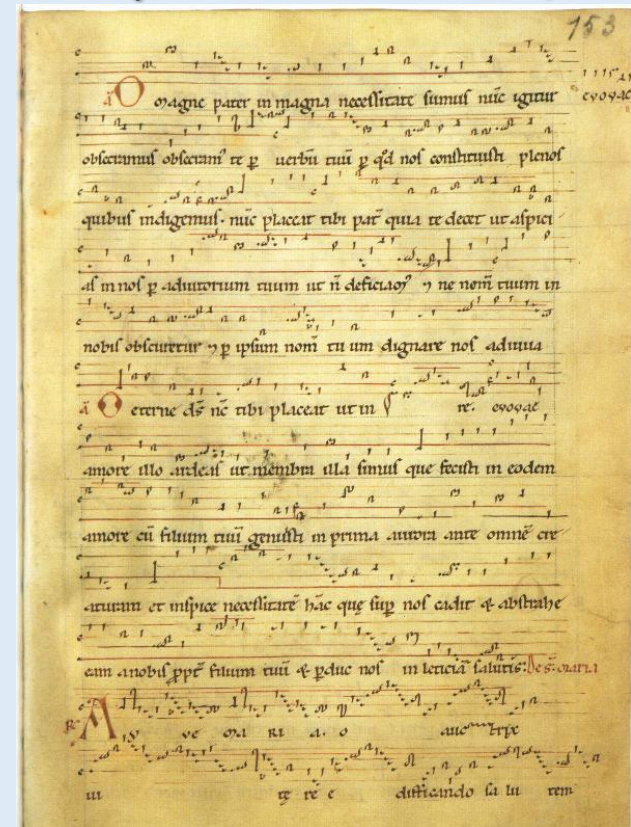 153
O magne pater in magna necessitate sumus nūc igitur evovae
obsecramus obsecram' te p verbū tuū p qd nos constituisti plenos
quibus indigemus. nūc placeat tibi pat quia te decet ut aspici
as in nos p adiutorium tuum ut n deficiam' 7 ne nom tuum in
nobis obscuretur 7 p ipsum nom tuum dignare nos adiuva
O eterne ds nc tibi placeat ut in re. evovae
amore illo ardeas ut membra illa simus que fecisti in eodem
amore cū filium tuū genuisti in prima aurora ante omnē cre
aturam et inspice necessitatē hāc que sup nos cadit & abstrahe
eam a nobis ppt filium tuū & pduc nos in leticiā salutis. De s. maria
AVE MARIA O auctrix
vi te re e dificando salu tem